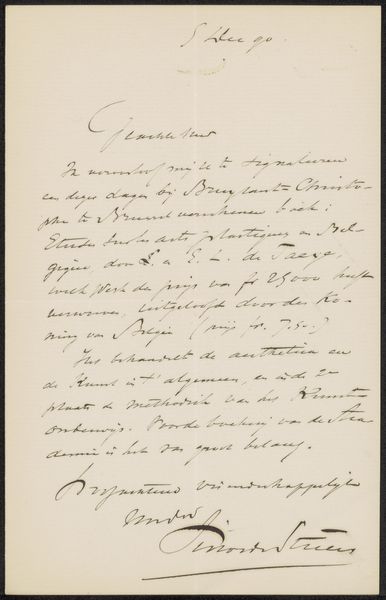 5 Dec 90.
Geachte Heer
Ik veroorloof mij U te signaleeren
een dezer dagen bij Bruylant-Christo-
phe te Brussel verschenen boek:
Etudes sur les arts plastiques en Bel-
gique, door E. L. de Taeye,
welk werk den prijs van fr 25000 heeft
verworven, uitgeloofd door den Ko-
ning van België (prijs fr. 7.50.)
Het behandelt de aesthetica en
de Kunst in 't algemeen, en in de 2e
plaats de methodiek van het Kunst-
onderwijs. Voor de boekerij van de Aca-
demie is het van groot belang.
vriendschappelijk